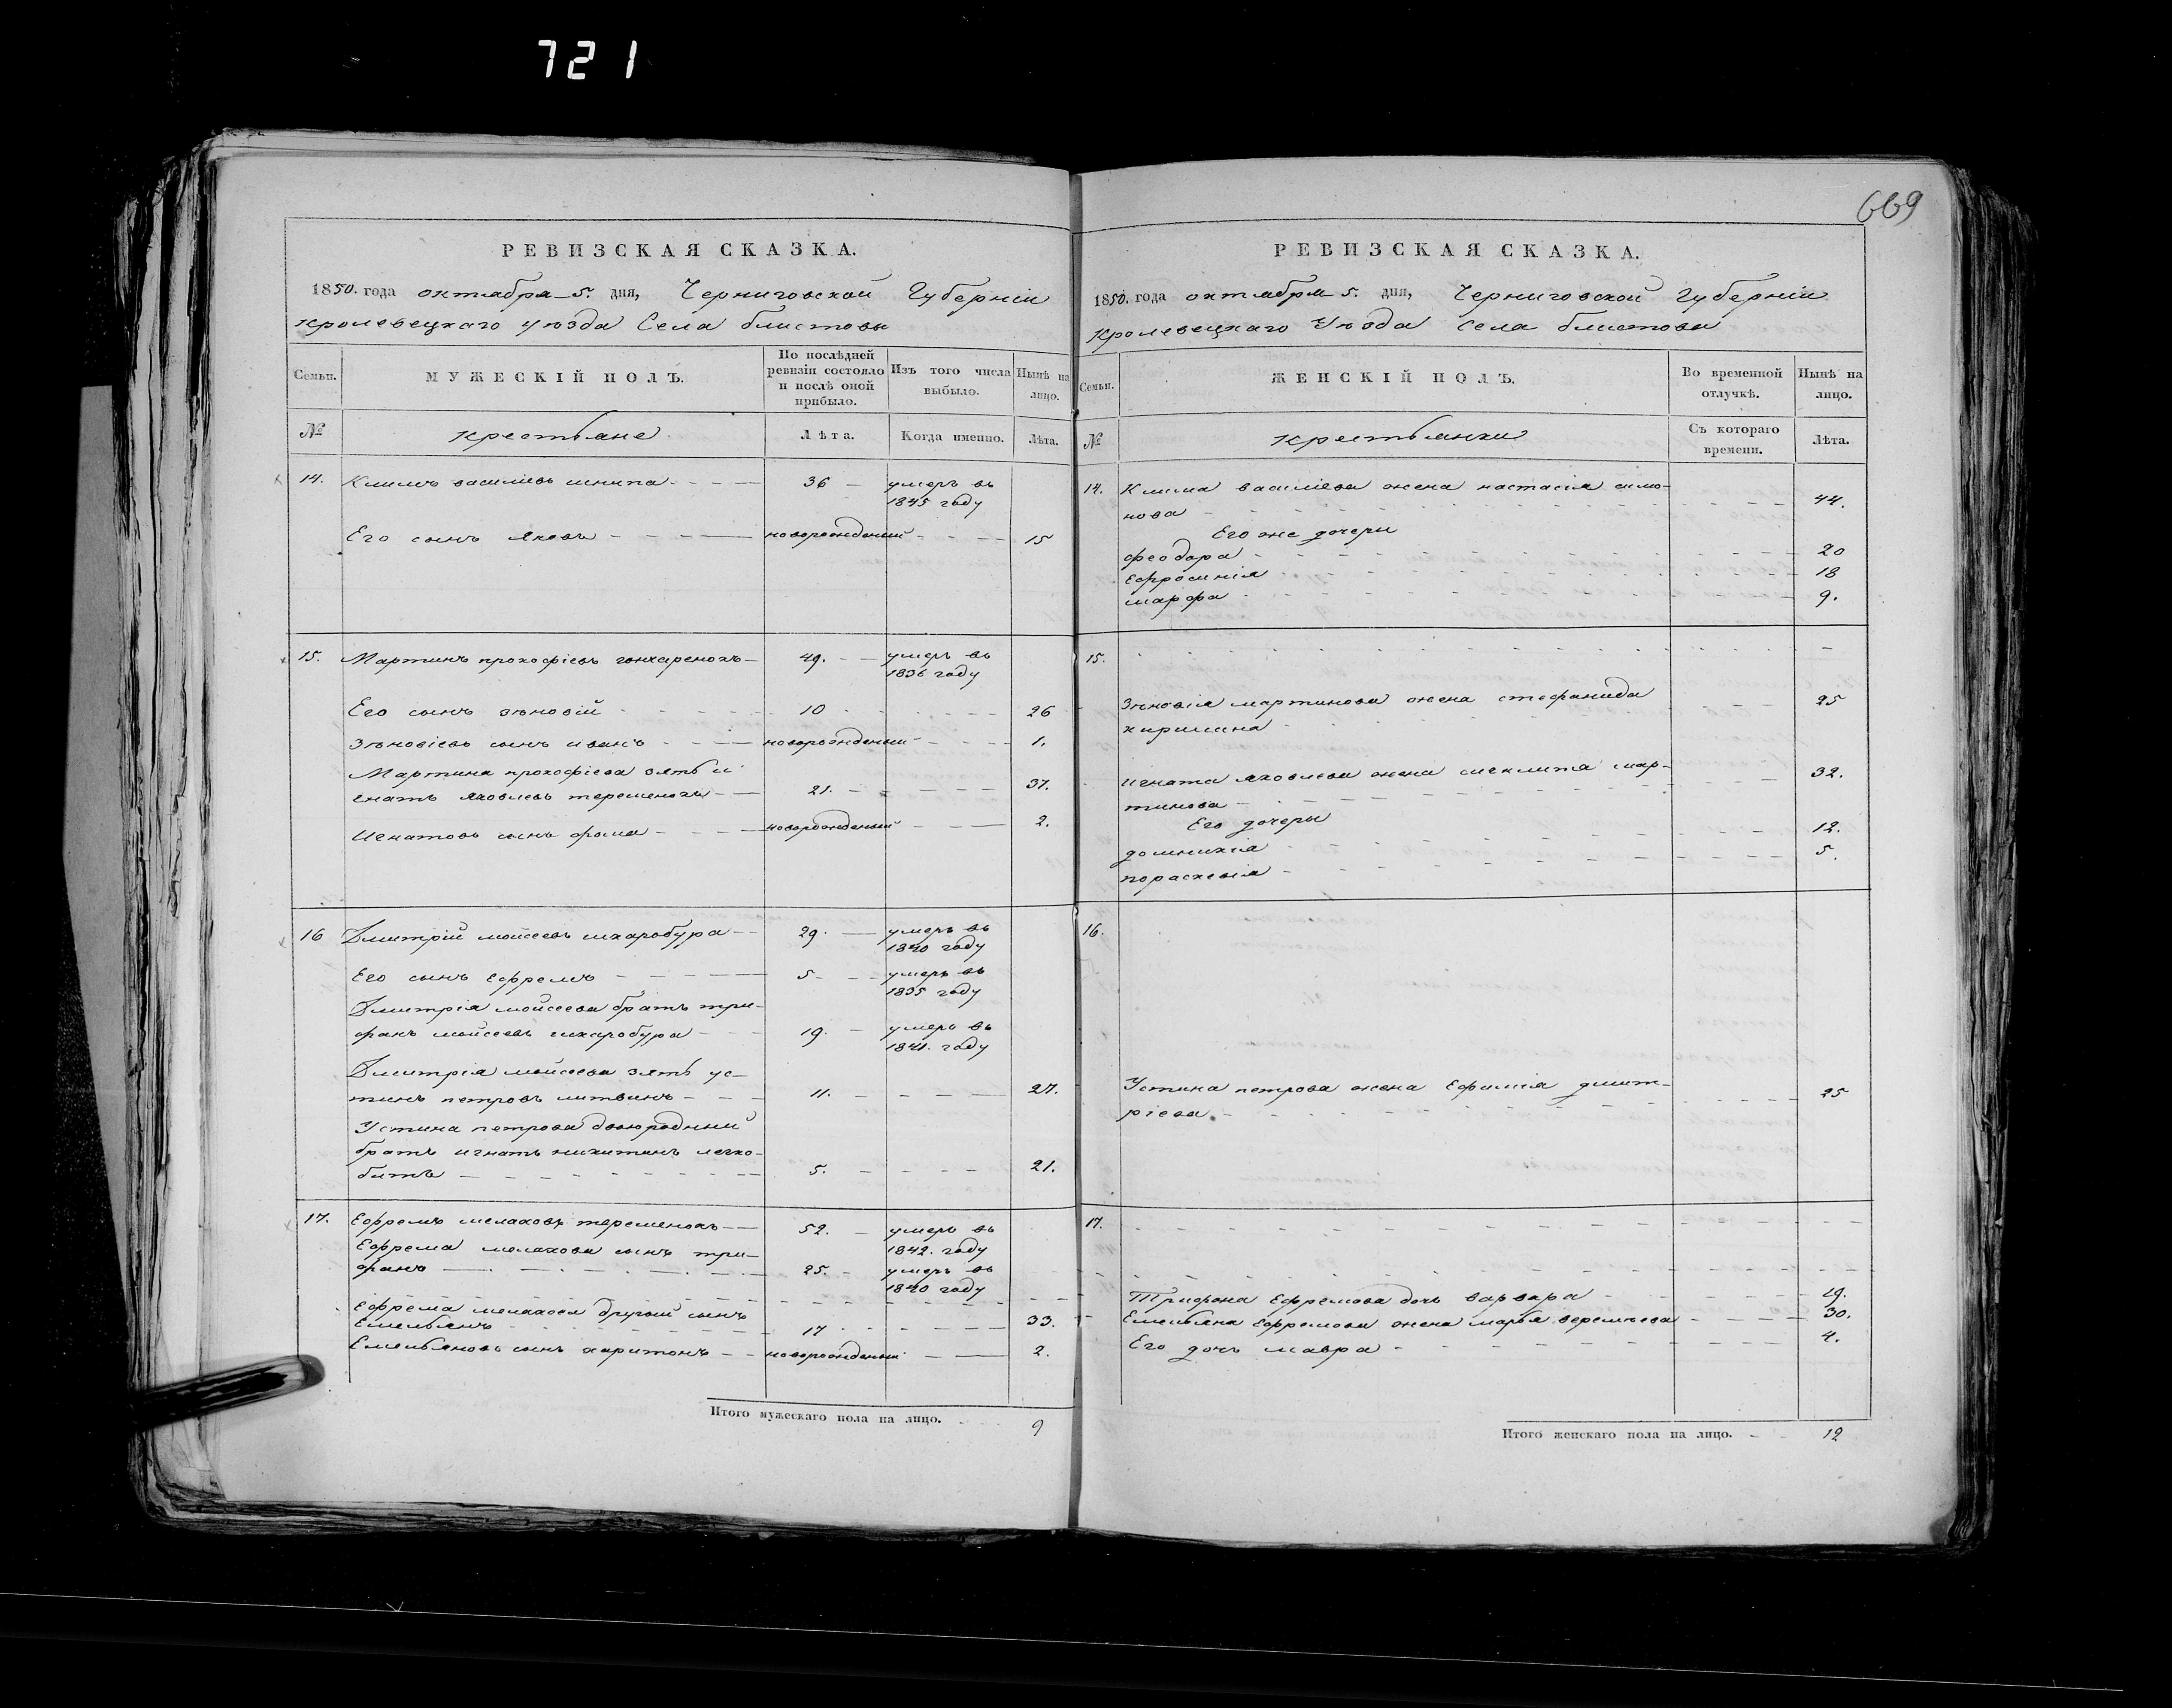 721
669
РЕВИЗСКАЯ СКАЗКА.
1850. года октября 5. дня, Черниговской Губерніи
кролевецкаго уѣзда Села блистовы
Семьи.
МУЖЕСКІЙ ПОЛЪ.
По послѣдней ревизіи состояло и послѣ оной прибыло.
Изъ того числа выбыло.
Нынѣ на лицо.
№
крестьяне
Лѣта.
Когда именно.
Лѣта.
14. Климъ василіевъ шнита 36 умеръ въ
1845 году
Его сынъ яковъ новорожденый 15
15. Мартинъ прокофіевъ гонхаренокъ 49. умеръ въ
1836 году
Его сынъ зѣновій 10 26
Зѣновіевъ сынъ иванъ новорожденый 1.
Мартина прокофіева зять и
гнатъ яковлевъ терещенокъ 21. 37.
Игнатовъ сынъ фома новорожденый 2.
16 Дмитрій мойсеевъ шкаробура 29. умеръ въ
1840 году
Его сынъ Ефремъ 5 умеръ въ
1835 году
Дмитрія мойсеева братъ три-
фанъ мойсеевъ шкаробура 19. умеръ въ
1841. году
Дмитрія мойсеева зять ус-
тинъ петровъ литвинъ 11. 27.
Устина петрова двоюродный
братъ игнатъ никитинъ легко-
битъ 5. 21.
17. Ефремъ мелаховъ терещенокъ 52. умеръ въ
Ефрема мелахова сынъ три- 1842. году
фанъ 25. умеръ въ
1840 году
Ефрема мелахова другий сынъ
Емельянъ 17 33.
Емельяновъ сынъ харитонъ новорожденый 2.
Итого мужескаго пола на лицо. 9
РЕВИЗСКАЯ СКАЗКА.
1850. года октября 5. дня, Черниговской Губерніи
Кролевецкаго Уѣзда Села блистовы
Семьи.
ЖЕНСКІЙ ПОЛЪ.
Во временной отлучкѣ.
Нынѣ на лицо.
№
крестьянки
Съ котораго времени.
Лѣта.
14. Клима василіева жена настасія симо-
нова 44.
Его же дочери
феодора 20
Ефросинія 18
марфа 9.
15.
Зѣновія мартинова жена стефанида 25
кирилина
игната яковлева жена меклита мар- 32.
тинова
Его дочеры
домникія 12.
параскевія 5.
16.
Устина петрова жена Ефимія дмит-
ріева 25
17.
Трифона Ефремова дочь варвара 19.
Емельяна Ефремова жена марья веремѣева 30.
Его дочь мавра 4.
Итого женскаго пола на лицо. 12